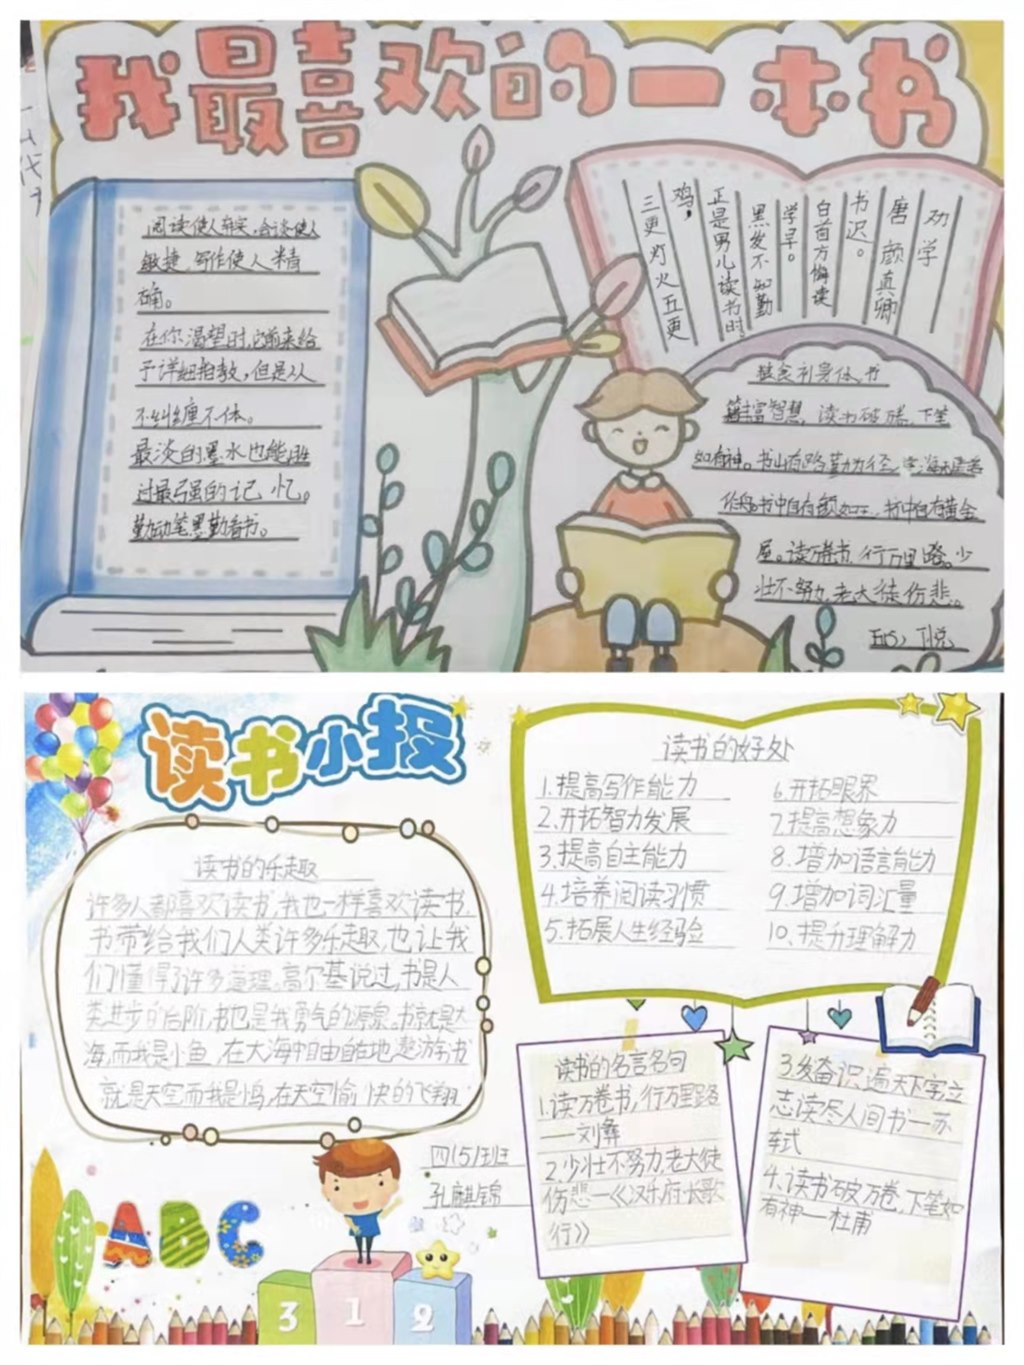 我最喜欢的一本书
阅读使人充实,会谈使人
敏捷,写作使人精
确。
在你渴望时,它前来给
予详细指教,但是从
不纠缠不休。
最淡的墨水也能胜
过最强的记忆。
勤动笔墨勤看书。
劝学
唐 颜真卿
书迟。
白首方悔读
学早。
黑发不知勤
正是男儿读书时
鸡,
三更灯火五更
粮食补身体,书
籍丰富智慧,读书破万卷,下笔
如有神。书山有路勤为径,学海无涯苦
作舟。书中自有颜如玉,书中自有黄金
屋。读万卷书,行万里路。少
壮不努力,老大徒伤悲。
读书小报
读书的乐趣
许多人都喜欢读书,我也一样喜欢读书.
书带给我们人类许多乐趣,也让我
们懂得了许多道理。高尔基说过,书是人
类进步的台阶,书也是我勇气的源泉。书就是大
海,而我是小鱼,在大海中自由自在地遨游,书
就是天空而我是鸟,在天空愉快的飞翔
四(5)班
孔麒锦
ABC
3 1 2
读书的好处
1.提高写作能力
2.开拓智力发展
3.提高自主能力
4.培养阅读习惯
5.拓展人生经验
6.开拓眼界
7.提高想象力
8.增加语言能力
9.增加词汇量
10、提升理解力
读书的名言名句
1.读万卷书,行万里路
——刘彝
2.少壮不努力,老大徒
伤悲—《汉乐府·长歌
行》
3.发奋识遍天下字,立
志读尽人间书—苏
轼
4.读书破万卷,下笔如
有神—杜甫